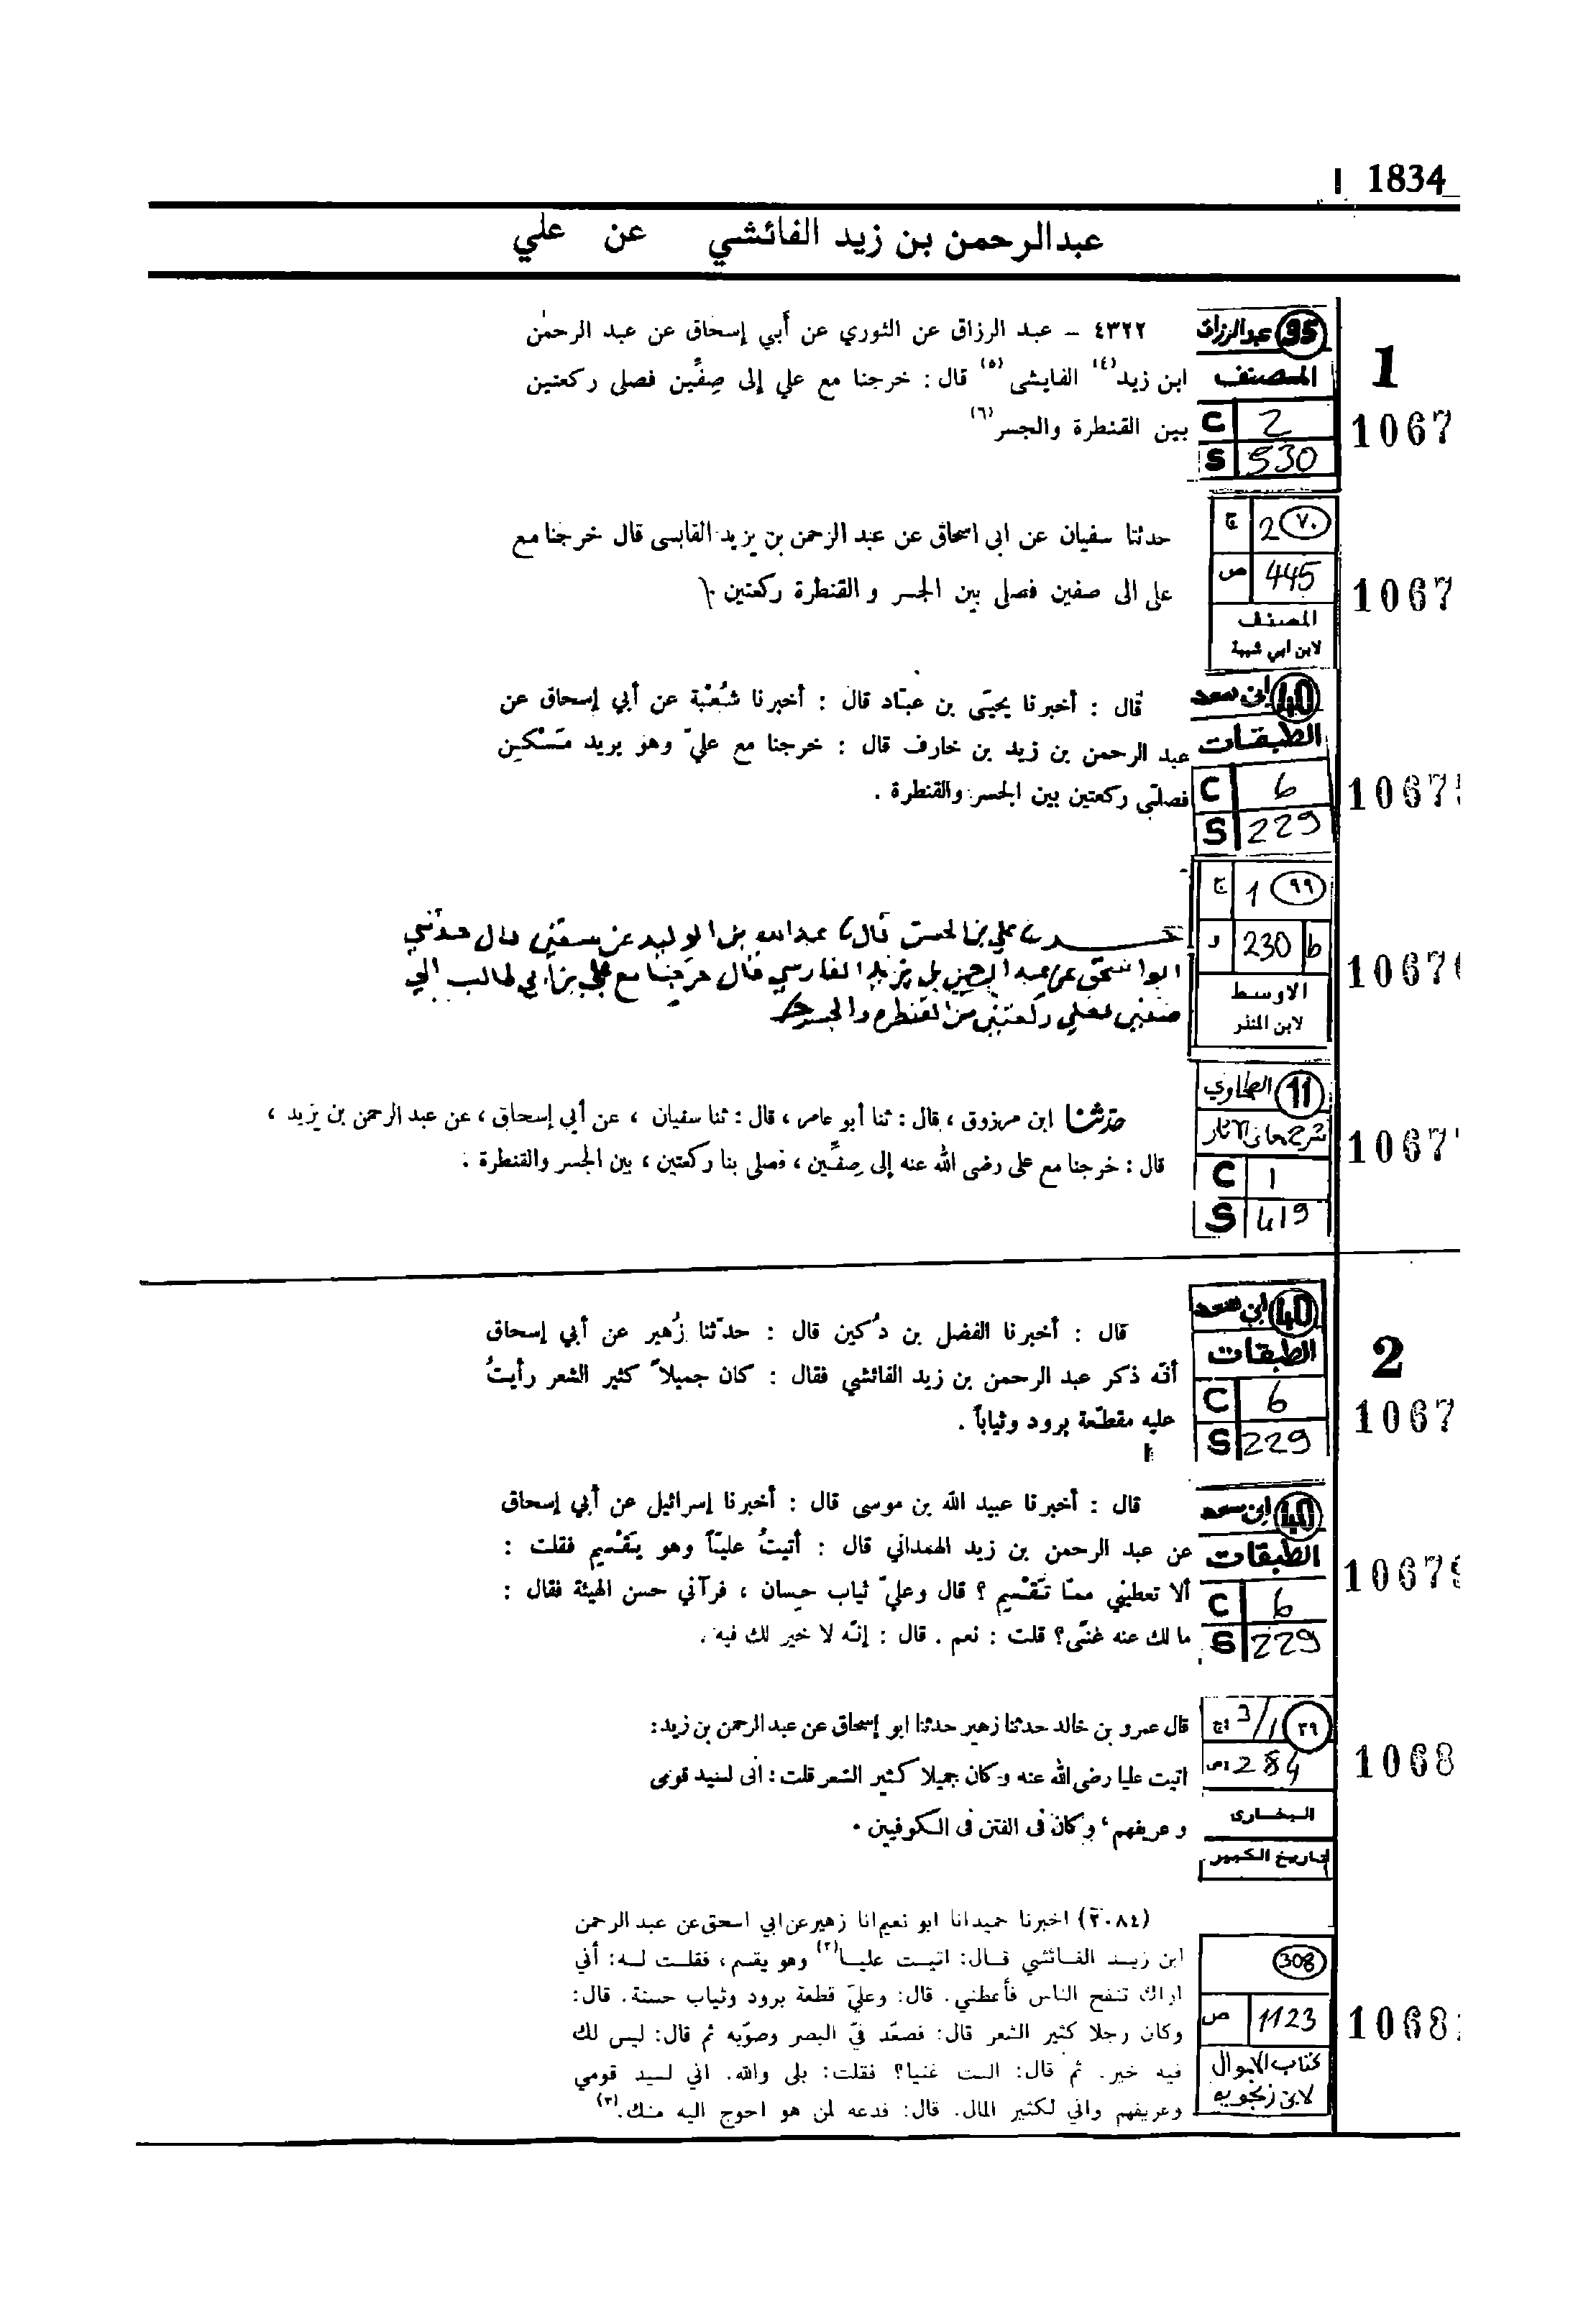 1834
عبدالرحمن بن زيد الفائشي عن علي
1
1067
95 عبدالرزاق
المصنف
C 2
S 530
٤٣٢٢ – عبد الرزاق عن الثوري عن أبي إسحاق عن عبد الرحمن
ابن زيد(٤) الفايشى(٥) قال : خرجنا مع علي إلى صِفِّين فصلى ركعتين
بين القنطرة والجسر(٦)
1067
ج 2 ٧٠
ص 445
المصنف
لابن ابي شيبة
حدثنا سفيان عن ابى اسحاق عن عبد الرحمن بن يزيد القابسى قال خرجنا مع
على الى صفين فصلى بين الجسر و القنطرة ركعتين
1067
40 ابن سعد
الطبقات
C 6
S 229
قال : أخبرنا يحيَى بن عبّاد قال : أخبرنا شُعْبة عن أبي إسحاق عن
عبد الرحمن بن زيد بن خارف قال : خرجنا مع عليّ وهو يريد مَسْكِين
فصلّى ركعتين بين الجسر والقنطرة .
1067
ج 1 ٩٩
و 230 b
الاوسط
لابن المنذر
علي بن الحسن قال عبدالله بن الوليد عن سفين قال حدثني
ابوا سحق عن عبد الرحمن بن يزيد الفارسي قال خرجنا مع علي بن أبي طالب الى
صفين فصلى ركعتين بين القنطره والجسر
1067
11 الطحاوي
شرح معاني الاثار
C 1
S 419
حدثنا ابن مرزوق ، قال : ثنا أبو عامر ، قال : ثنا سفيان ، عن أبي إسحاق ، عن عبد الرحمن بن يزيد ،
قال : خرجنا مع على رضى الله عنه إلى صِفِّين ، فصلى بنا ركعتين ، بين الجسر والقنطرة .
2
1067
40 ابن سعد
الطبقات
C 6
S 229
قال : أخبرنا الفضل بن دُكين قال : حدّثنا زُهير عن أبي إسحاق
أنّه ذكر عبد الرحمن بن زيد الفائشي فقال : كان جميلاً كثير الشعر رأيتُ
عليه مقطّعة برود وثياباً .
1067
40 ابن سعد
الطبقات
C 6
S 229
قال : أخبرنا عبيد الله بن موسى قال : أخبرنا إسرائيل عن أبي إسحاق
عن عبد الرحمن بن زيد الهمداني قال : أتيتُ عليّاً وهو يَقْسِم فقلت :
ألا تعطيني ممّا تَقْسِم ؟ قال وعليّ ثياب حِسان ، فرآني حسن الهيئة فقال :
ما لك عنه غنًى؟ قلت : نعم . قال : إنّه لا خير لك فيه .
1068
ج 3/1 ٣٩
ص 284
البخارى
تاريخ الكبير
قال عمرو بن خالد حدثنا زهير حدثنا ابو إسحاق عن عبد الرحمن بن زيد:
اتيت عليا رضى الله عنه وكان جميلا كثير الشعر قلت : انى لسيد قومى
و عريفهم ، وكان فى الفتن فى الكوفيين .
1068
308
ص 1123
كتاب الاموال
لابن زنجويه
(٢٠٨٤) اخبرنا حميد انا ابو نعيم انا زهير عن ابي اسحق عن عبد الرحمن
ابن زيد الفائشي قال: اتيت عليا(٢) وهو يقسم، فقلت له: أني
اراك تنفح الناس فأعطني. قال: وعليّ قطعة برود وثياب حسنة. قال:
وكان رجلا كثير الشعر قال: فصعّد فيّ البصر وصوّبه ثم قال: ليس لك
فيه خير. ثم قال: الست غنيا؟ فقلت: بلى والله. اني لسيد قومي
وعريفهم واني لكثير المال. قال: فدعه لمن هو احوج اليه منك.(٣)